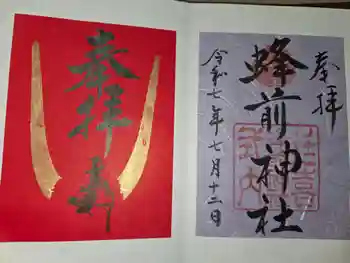 奉拝
蜂前神社
令和七年七月十二日
奉拝